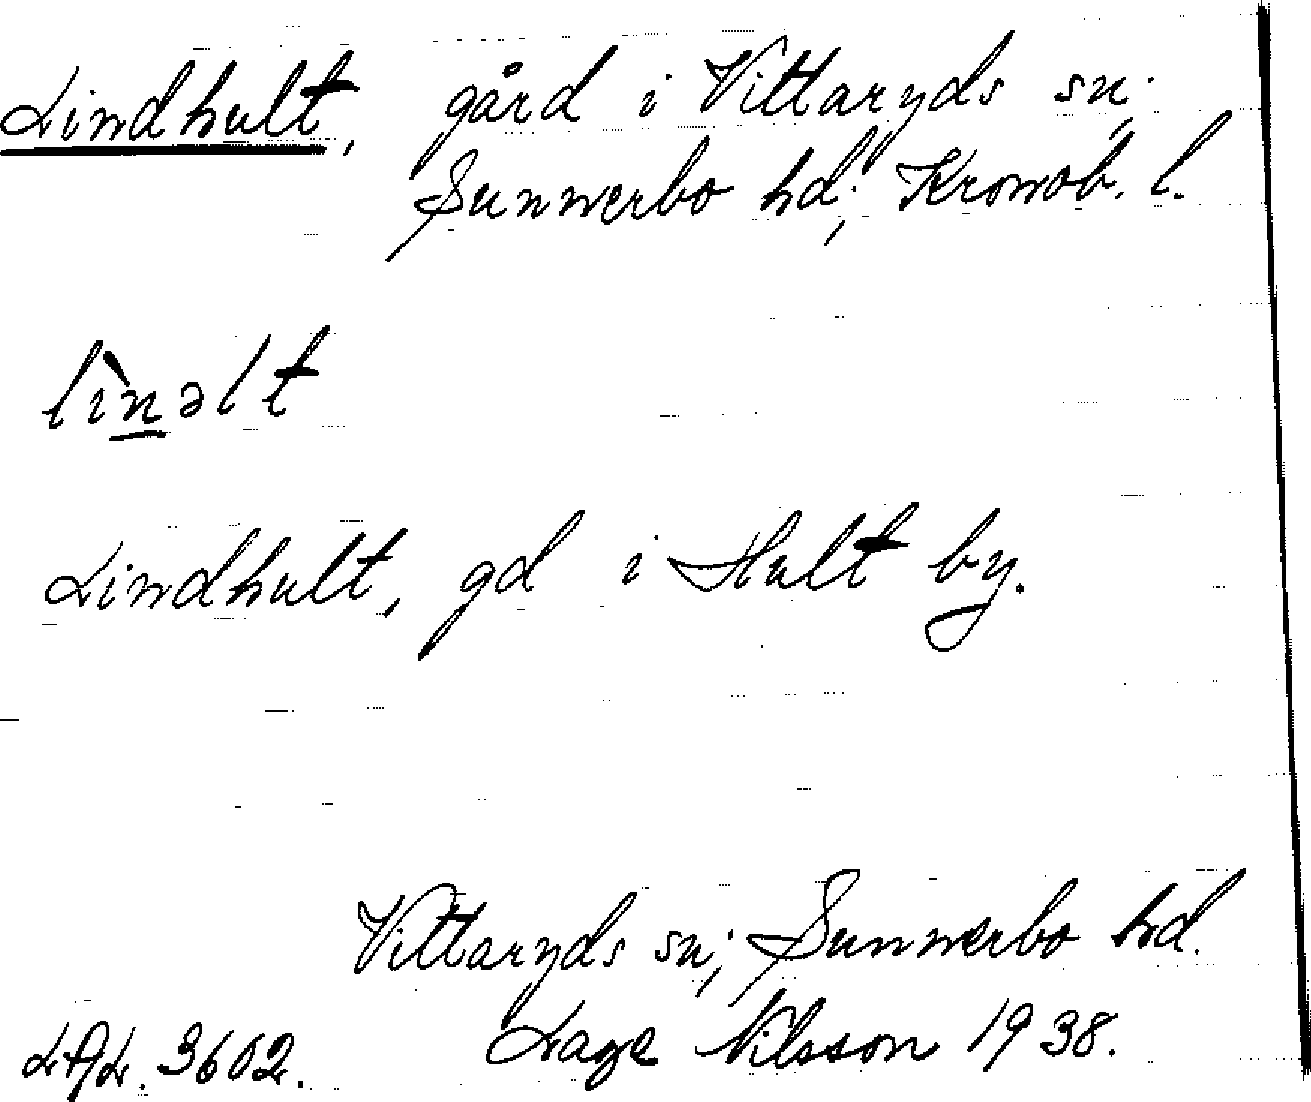 Lindhult, gård i Vittaryds sn;
Sunnerbo hd; Kronob. l.
lìn̲əlt
Lindhult, gd i Hult by.
Vittaryds sn; Sunnerbo hd.
LAL. 3602. Lage Nilsson 1938.